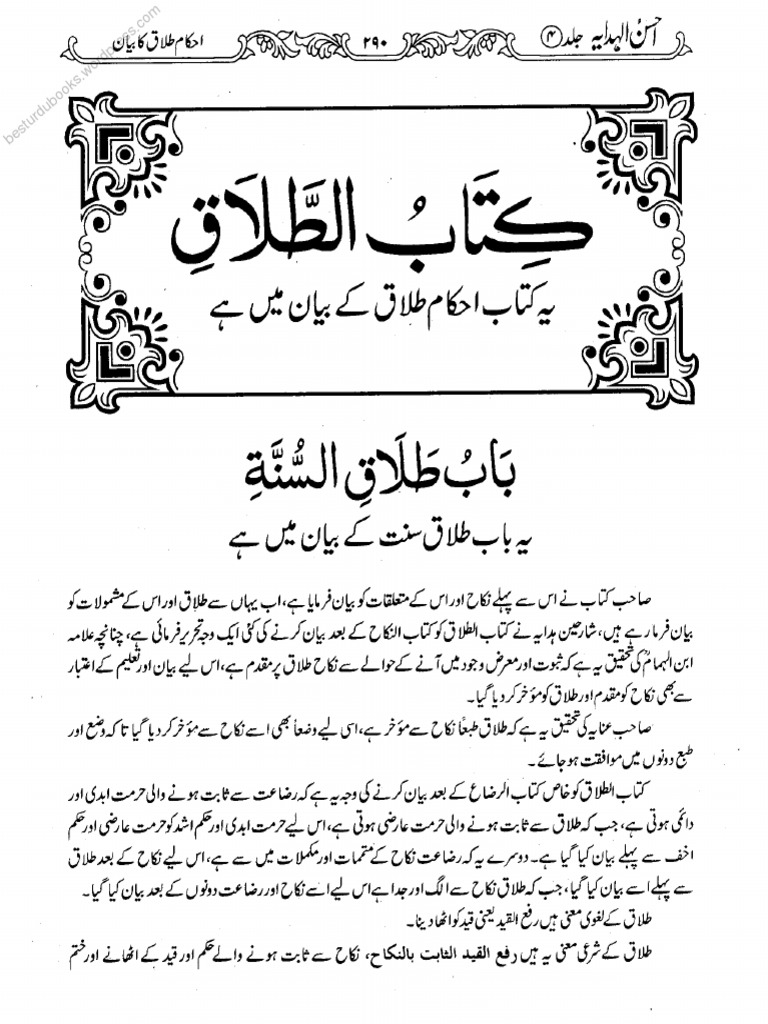 احسن الہدایہ جلد ۴ ۲۹۰ احکام طلاق کا بیان
besturdubooks.wordpress.com
کِتَابُ الطَّلَاقِ
یہ کتاب احکام طلاق کے بیان میں ہے
بَابُ طَلَاقِ السُّنَّةِ
یہ باب طلاق سنت کے بیان میں ہے
صاحب کتاب نے اس سے پہلے نکاح اور اس کے متعلقات کو بیان فرمایا ہے، اب یہاں سے طلاق اور اس کے مشمولات کو
بیان فرما رہے ہیں، شارحین ہدایہ نے کتاب الطلاق کو کتاب النکاح کے بعد بیان کرنے کی کئی ایک وجہ تحریر فرمائی ہے، چنانچہ علامہ
ابن الہمامؒ کی تحقیق یہ ہے کہ ثبوت اور معرض وجود میں آنے کے حوالے سے نکاح طلاق پر مقدم ہے، اس لیے بیان اور تعلیم کے اعتبار
سے بھی نکاح کو مقدم اور طلاق کو مؤخر کر دیا گیا۔
صاحب عنایہ کی تحقیق یہ ہے کہ طلاق طبعاً نکاح سے مؤخر ہے، اسی لیے وضعاً بھی اسے نکاح سے مؤخر کر دیا گیا تاکہ وضع اور
طبع دونوں میں موافقت ہو جائے۔
کتاب الطلاق کو خاص کتاب الرضاع کے بعد بیان کرنے کی وجہ یہ ہے کہ رضاعت سے ثابت ہونے والی حرمت ابدی اور
دائمی ہوتی ہے، جب کہ طلاق سے ثابت ہونے والی حرمت عارضی ہوتی ہے، اس لیے حرمت ابدی اور حکم اشد کو حرمت عارضی اور حکم
اخف سے پہلے بیان کیا گیا ہے۔ دوسرے یہ کہ رضاعت نکاح کے متممات اور مکملات میں سے ہے، اس لیے نکاح کے بعد طلاق
سے پہلے اسے بیان کیا گیا، جب کہ طلاق نکاح سے الگ اور جدا ہے اس لیے اسے نکاح اور رضاعت دونوں کے بعد بیان کیا گیا۔
طلاق کے لغوی معنی ہیں رفع القید یعنی قید کو اٹھا دینا۔
طلاق کے شرعی معنی یہ ہیں رفع القید الثابت بالنکاح، نکاح سے ثابت ہونے والے حکم اور قید کے اٹھانے اور ختم